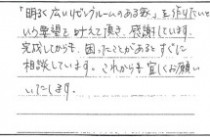 「明るく広いリビングルームのある家」を作りたいと
いう希望を叶えて頂き、感謝しています。
完成してからも、困ったことがあるとすぐに
相談しています。これからも宜しくお願い
いたします。